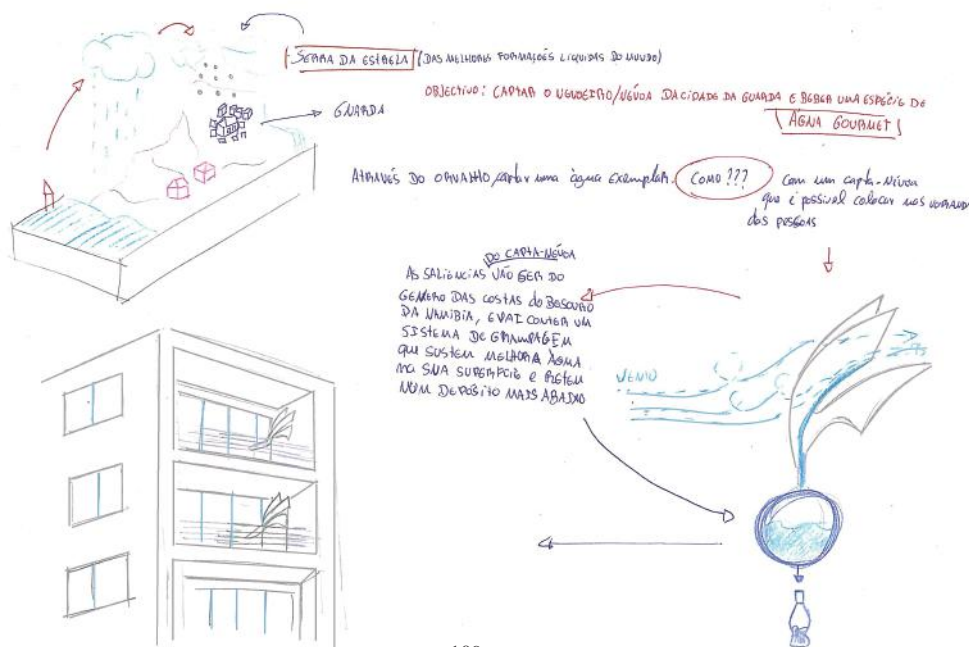 SERRA DA ESTRELA (DAS MELHORES FORMAÇÕES LIQUIDAS DO MUNDO)
OBJECTIVO: CAPTAR O NEVOEIRO/NÉVOA DA CIDADE DA GUARDA E BEBER UMA ESPÉCIE DE
ÁGUA GOURMET
GUARDA
ATRAVÉS DO ORVALHO, captar uma àgua Exemplar. COMO ???
com um capta-Névoa
que é possivel colocar nas varandas
das pessoas
DO CAPTA-NÉVOA
AS SALIÊNCIAS VÃO SER DO
GENERO DAS COSTAS do BESOURO
DA NAMIBIA, E VAI CONTER UM
SISTEMA DE GRAMPAGEM
QUE SUSTEM MELHOR A ÀGUA
NA SUA SUPERFICIE E RETEM
NUM DEPÓSITO MAIS ABAIXO
VENTO